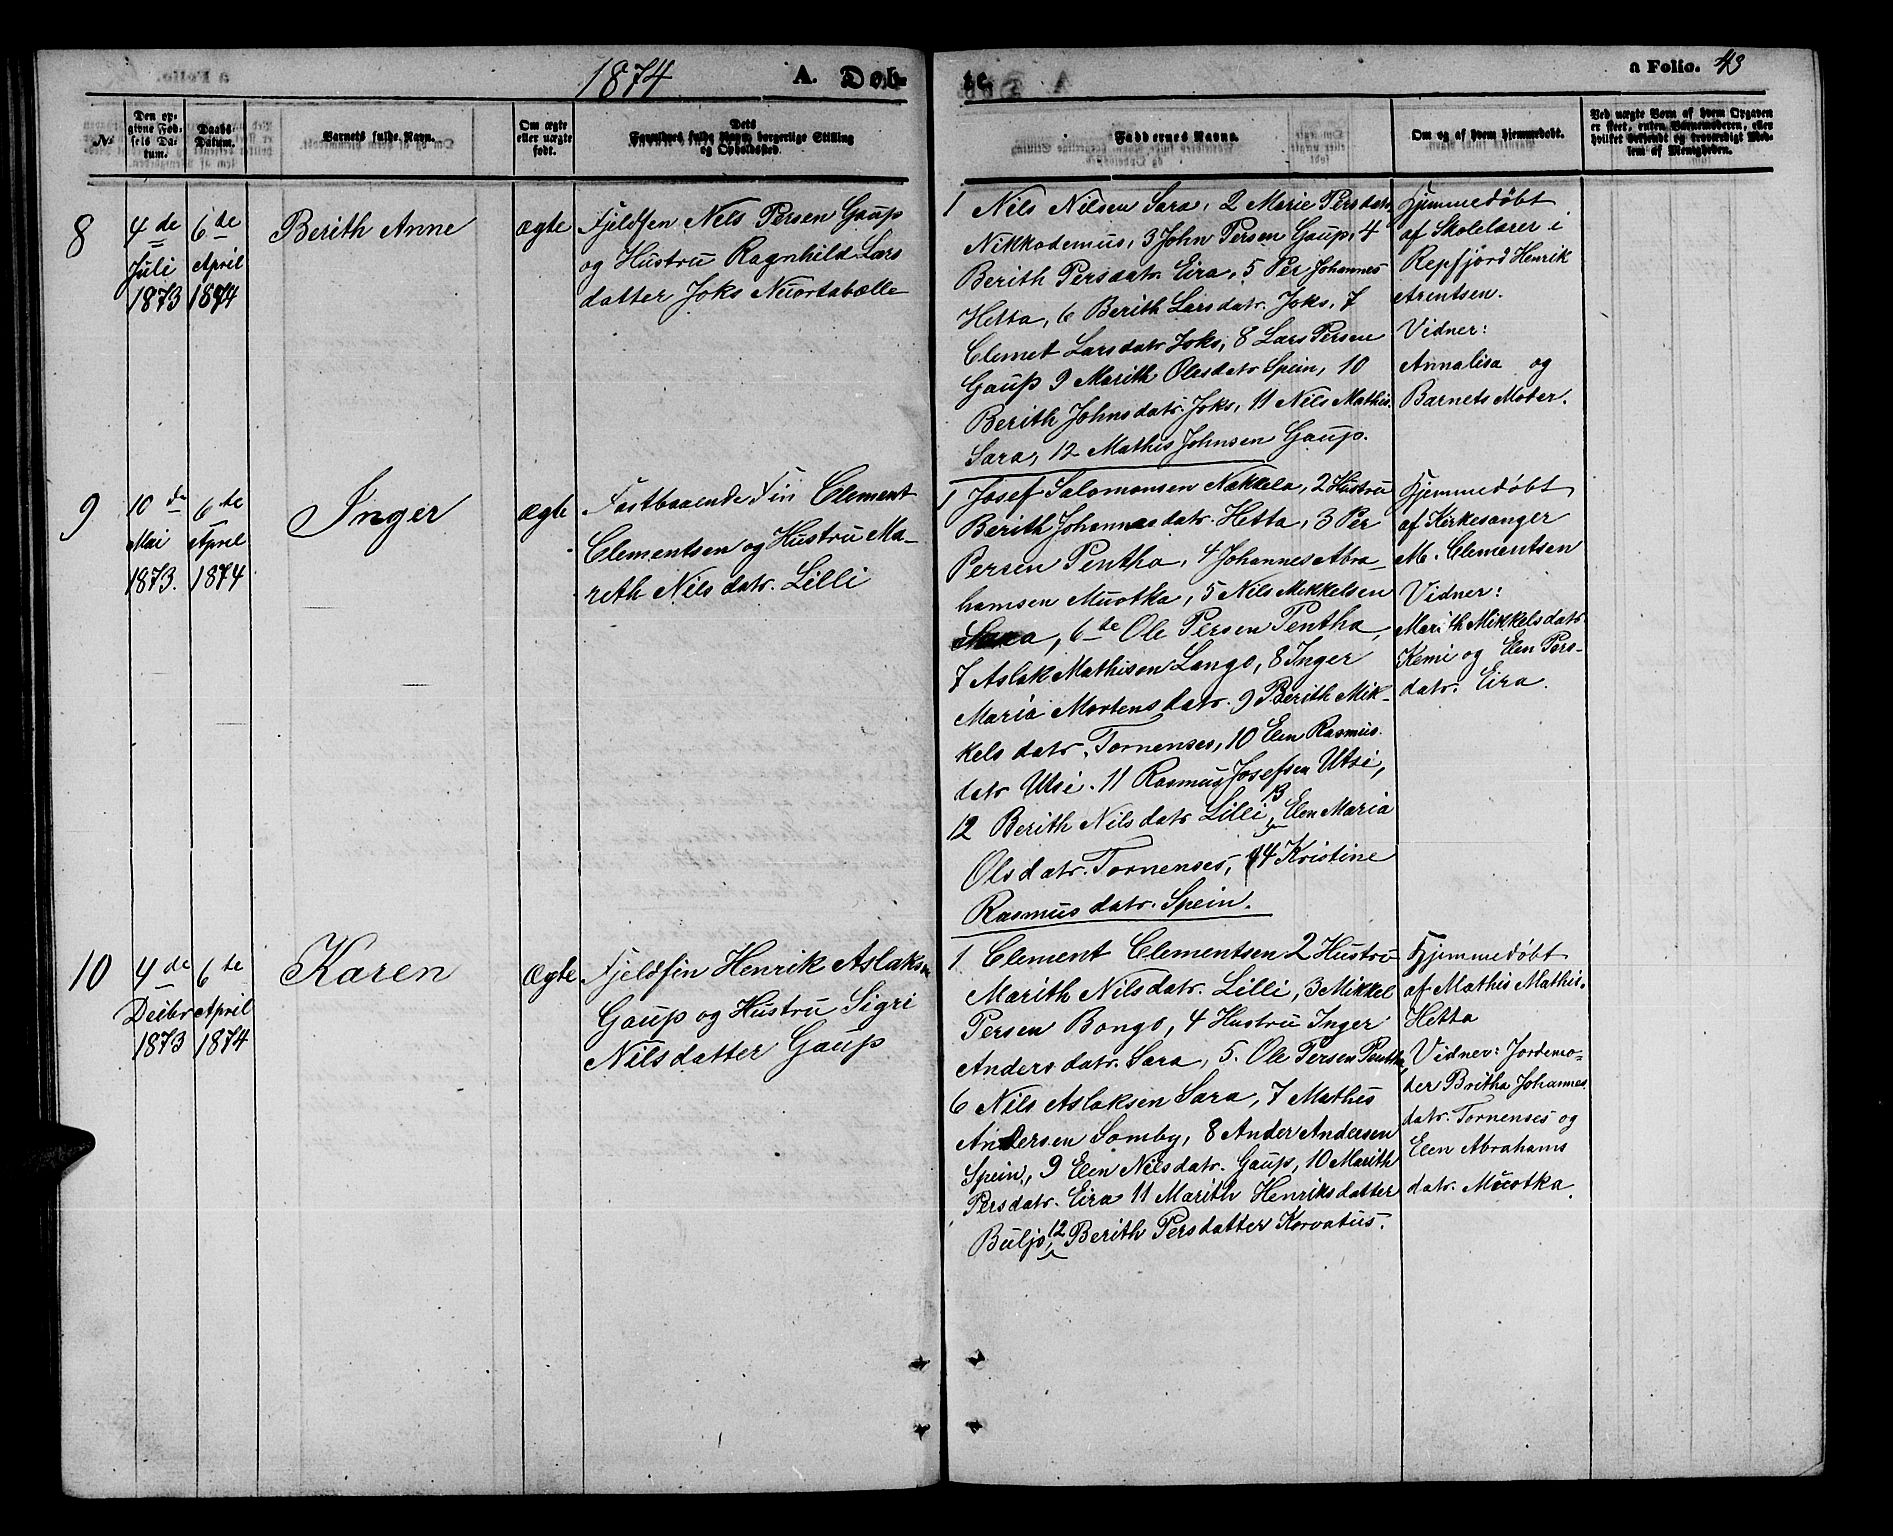 1874 A. Døb-
te. a Folio. 43
№ Den op-
givne Fød-
sels Da-
tum. Daabs
Datum. Barnets fulde Navn. Om ægte
eller uægte
født. Dets
Forældres fulde Navn borgerlige Stilling
og Opholdssted.
Faddernes Navne. Om og af hvem hjemmedøbt. Ved uægte Børn af hvem Opgaven
er skeet, enten Barnemoderen, eller
hvilket bekjendt og troværdigt Med-
lem af Menigheden.
8
4de
Juli
1873
6de
April
1874
Berith Anne
ægte
Fjeldfin Nils Persen Gaup
og Hustru Ragnhild Lars
datter Joks Nuortabælle
1 Nils Nilsen Sara, 2 Marie Persdatr
Nikkodemus, 3 John Persen Gaup, 4
Berith Persdatr. Eira, 5 Per Johannes
Hetta, 6 Berith Larsdatr. Joks, 7
Clemet Larsdatr Joks, 8 Lars Persen
Gaup 9 Marith Olesdatr Spein, 10
Berith Johnsdatr. Joks, 11 Nils Mathis.
Sara, 12 Mathis Johnsen Gaup.
Hjemmedøbt
af Skolelærer i
Repfjord Henrik
Arentsen.
Vidner:
Annalisa og
Barnets Moder.
9
10de
Mai
1873.
6te
April
1874
Inger
ægte
Fastboende Fin Clement
Clementsen og Hustru Ma-
reth Nilsdatr. Lilli
1 Josef Salomonsen Nækkela, 2 Hustru
Berith Johannesdatr. Hetta, 3 Per
Persen Pentha, 4 Johannes Abra-
hamsen Muotka, 5 Nils Mikkelsen
Sara, 6te Ole Persen Pentha,
7 Aslak Mathisen Lango, 8 Inger
Maria Mortensdatr. 9 Berith Mik-
kelsdatr. Tornenses, 10 Elen Rasmus.
datr Utsi. 11 Rasmus Josefsen Utsi,
12 Berith Nilsdatr Lilli, 13 Elen Maria
Olsdatr. Tornenses, 14 Kristine
Rasmusdatr. Spein.
Hjemmedøbt
af Kirkesanger
M. Clementsen
Vidner:
Marith Mikkelsdatr.
Kemi og Elen Pers-
datr. Eira.
10
4de
Decbr
1873
6te
April
1874
Karen
Ægte
Fjeldfin Henrik Aslaksn
Gaup og Hustru Sigri
Nilsdatter Gaup
1. Clement Clementsen 2 Hustru
Marith Nilsdatr. Lilli, 3 Mikkel
Persen Bongo, 4 Hustru Inger
Andersdatr. Sara, 5. Ole Persen Pentha,
6 Nils Aslaksen Sara, 7 Mathis
Andersen Somby, 8 Ander Andersen
Spein, 9 Elen Nilsdatr. Gaup, 10 Marith
Persdatr. Eira 11 Marith Henriksdatter
Buljo, 12 Berith Persdatter Korvatus.
Hjemmedøbt
af Mathis Mathis.
Hetta
Vidner: Jordemo-
der Britha Johannes.
datr. Tornenses og
Elen Abrahams
datr. Muotka.